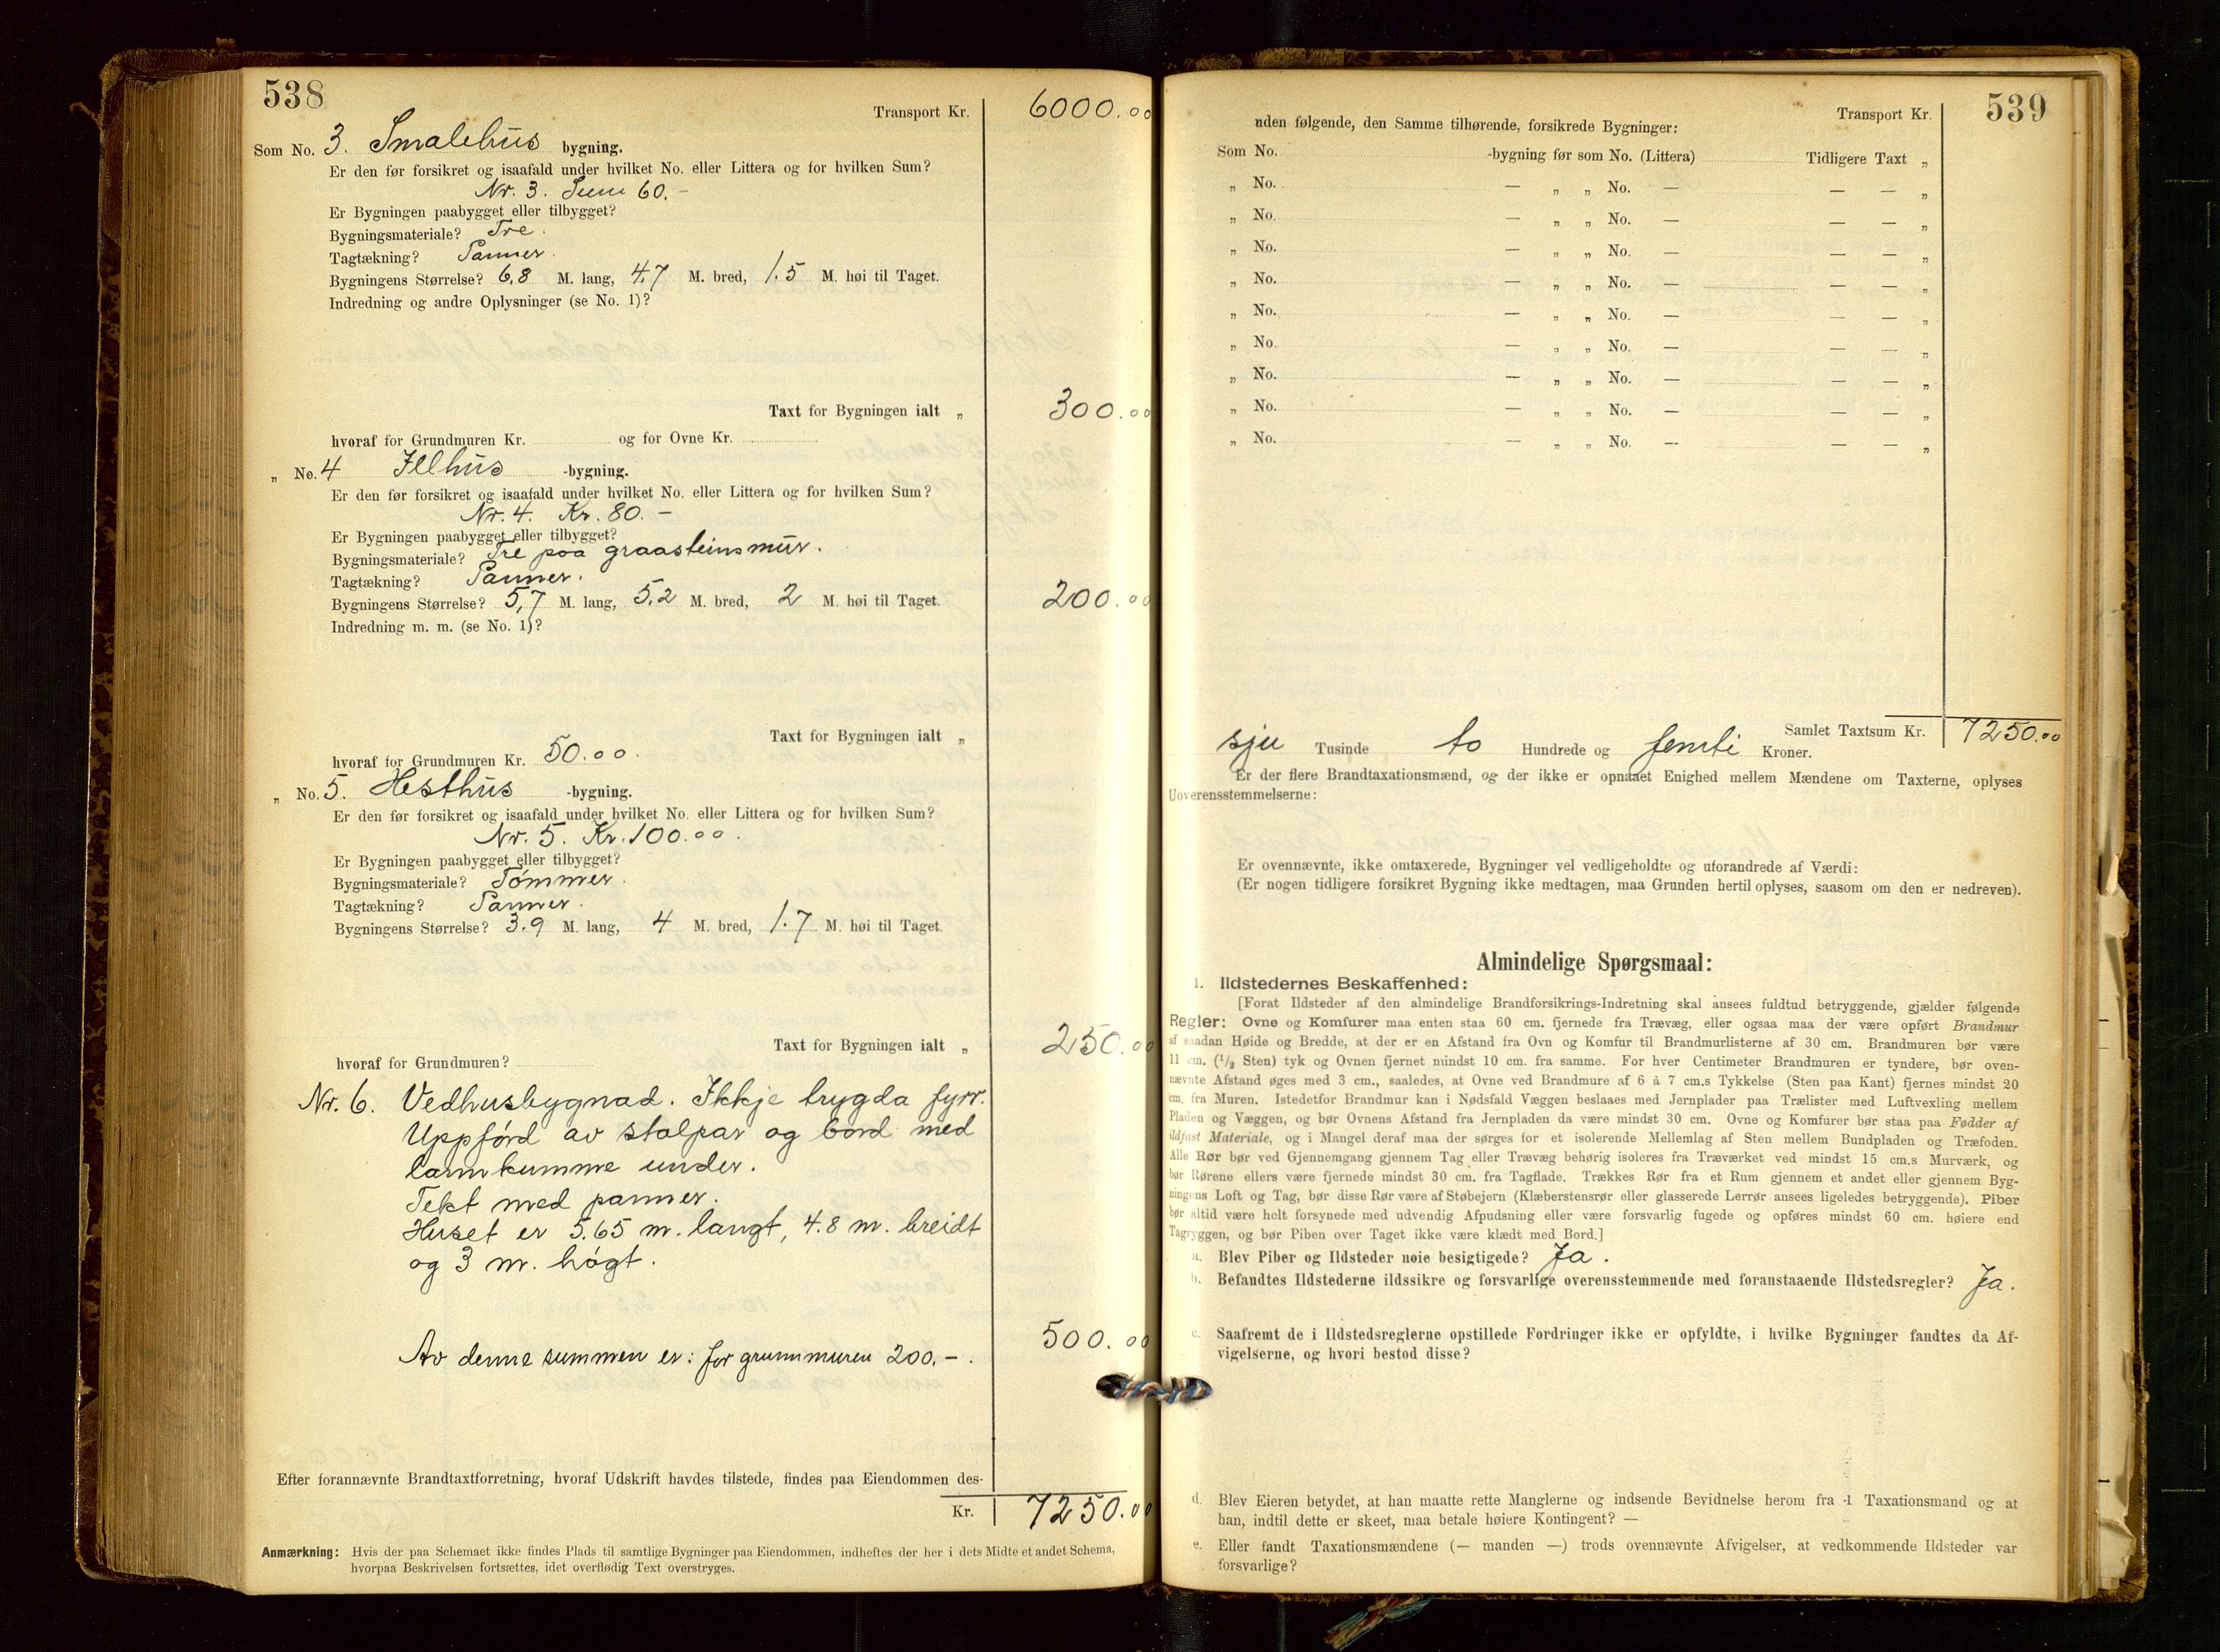 538
Transport Kr. 6000.00
Som No. 3. Smalehus bygning.
Er den før forsikret og isaafald under hvilket No. eller Littera og for hvilken Sum?
Nr. 3. Sum 60.-
Er Bygningen paabygget eller tilbygget?
Bygningsmateriale? Tre.
Tagtækning? Panner.
Bygningens Størrelse? 6,8 M. lang, 4,7 M. bred, 1.5 M. høi til Taget.
Indredning og andre Oplysninger (se No. 1)?
Taxt for Bygningen ialt „ 300.00
hvoraf for Grundmuren Kr. og for Ovne Kr.
„ No. 4 Ilhus -bygning.
Er den før forsikret og isaafald under hvilket No. eller Littera og for hvilken Sum?
Nr. 4. Kr. 80.-
Er Bygningen paabygget eller tilbygget?
Bygningsmateriale? Tre paa graasteinsmur.
Tagtækning? Panner.
Bygningens Størrelse? 5,7 M. lang, 5,2 M. bred, 2 M. høi til Taget. 200.00
Indredning m. m. (se No. 1)?
Taxt for Bygningen ialt „
hvoraf for Grundmuren Kr. 50.00.
„ No. 5. Hesthus -bygning.
Er den før forsikret og isaafald under hvilket No. eller Littera og for hvilken Sum?
Nr. 5. Kr. 100.00.
Er Bygningen paabygget eller tilbygget?
Bygningsmateriale? Tømmer.
Tagtækning? Panner.
Bygningens Størrelse? 3.9 M. lang, 4 M. bred, 1.7 M. høi til Taget.
Taxt for Bygningen ialt „ 250.00
hvoraf for Grundmuren?
Nr. 6. Vedhusbygnad. Ikkje trygda fyrr.
Uppførd av stolpar og bord med
lannkumme under.
Tekt med panner.
Huset er 5.65 m. langt, 4.8 m. breidt
og 3 m. høgt.
500.00
Av denne summen er: for grunnmuren 200.-.
Efter forannævnte Brandtaxtforretning, hvoraf Udskrift havdes tilstede, findes paa Eiendommen des-
Kr. 7250.00
Anmærkning: Hvis der paa Schemaet ikke findes Plads til samtlige Bygninger paa Eiendommen, indheftes der her i dets Midte et andet Schema,
hvorpaa Beskrivelsen fortsættes, idet overflødig Text overstryges.
539
Transport Kr.
uden følgende, den Samme tilhørende, forsikrede Bygninger:
Som No. -bygning før som No. (Littera) Tidligere Taxt „
„ No. — „ „ No. — — — „
„ No. — „ „ No. — — — „
„ No. — „ „ No. — — — „
„ No. — „ „ No. — — — „
„ No. — „ „ No. — — — „
„ No. — „ „ No. — — — „
„ No. — „ „ No. — — — „
„ No. — „ „ No. — — — „
„ No. — „ „ No. — — — „
Samlet Taxtsum Kr. 7250.00
sju Tusinde to Hundrede og femti Kroner.
Er der flere Brandtaxationsmænd, og der ikke er opnaaet Enighed mellem Mændene om Taxterne, oplyses
Uoverensstemmelserne:
Er ovennævnte, ikke omtaxerede, Bygninger vel vedligeholdte og uforandrede af Værdi:
(Er nogen tidligere forsikret Bygning ikke medtagen, maa Grunden hertil oplyses, saasom om den er nedreven).
Almindelige Spørgsmaal:
1. Ildstedernes Beskaffenhed:
[Forat Ildsteder af den almindelige Brandforsikrings-Indretning skal ansees fuldtud betryggende, gjælder følgende
Regler: Ovne og Komfurer maa enten staa 60 cm. fjernede fra Trævæg, eller ogsaa maa der være opført Brandmur
af saadan Høide og Bredde, at der er en Afstand fra Ovn og Komfur til Brandmurlisterne af 30 cm. Brandmuren bør være
11 cm. (1/2 Sten) tyk og Ovnen fjernet mindst 10 cm. fra samme. For hver Centimeter Brandmuren er tyndere, bør oven-
nævnte Afstand øges med 3 cm., saaledes, at Ovne ved Brandmure af 6 à 7 cm.s Tykkelse (Sten paa Kant) fjernes mindst 20
cm. fra Muren. Istedetfor Brandmur kan i Nødsfald Væggen beslaaes med Jernplader paa Trælister med Luftvexling mellem
Pladen og Væggen, og bør Ovnens Afstand fra Jernpladen da være mindst 30 cm. Ovne og Komfurer bør staa paa Fødder af
ildfast Materiale, og i Mangel deraf maa der sørges for et isolerende Mellemlag af Sten mellem Bundpladen og Træfoden.
Alle Rør bør ved Gjennemgang gjennem Tag eller Trævæg behørig isoleres fra Træværket ved mindst 15 cm.s Murværk, og
bør Rørene ellers være fjernede mindst 30 cm. fra Tagflade. Trækkes Rør fra et Rum gjennem et andet eller gjennem Byg-
ningens Loft og Tag, bør disse Rør være af Støbejern (Klæberstensrør eller glasserede Lerrør ansees ligeledes betryggende). Piber
bør altid være helt forsynede med udvendig Afpudsning eller være forsvarlig fugede og opføres mindst 60 cm. høiere end
Tagryggen, og bør Piben over Taget ikke være klædt med Bord.]
a. Blev Piber og Ildsteder nøie besigtigede? Ja.
b. Befandtes Ildstederne ildssikre og forsvarlige overensstemmende med foranstaaende Ildstedsregler? Ja.
c. Saafremt de i Ildstedsreglerne opstillede Fordringer ikke er opfyldte, i hvilke Bygninger fandtes da Af-
vigelserne, og hvori bestod disse?
d. Blev Eieren betydet, at han maatte rette Manglerne og indsende Bevidnelse herom fra 1 Taxationsmand og at
han, indtil dette er skeet, maa betale høiere Kontingent? —
e. Eller fandt Taxationsmændene (— manden —) trods ovennævnte Afvigelser, at vedkommende Ildsteder var
forsvarlige?